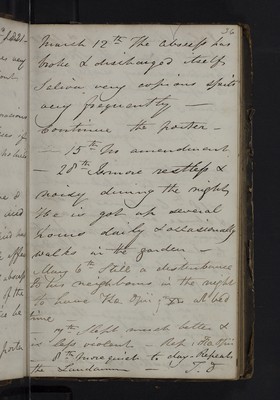 36
March 12th The abscess has
broke & discharged itself
Saliva very copious spits
very frequently —
Continue the porter —
— 15th No amendment
— 28th Is more restless &
noisy during the night
He is got up several
hours daily & occasionally
walks in the garden —
May 6th Still a disturbance
to his neighbours in the night
to have Tka Opii; at bed
time
7th Slept much better &
is less violent — Rep: Tka Opii
— 8th more quiet to day. Repeat
the Laudanum —